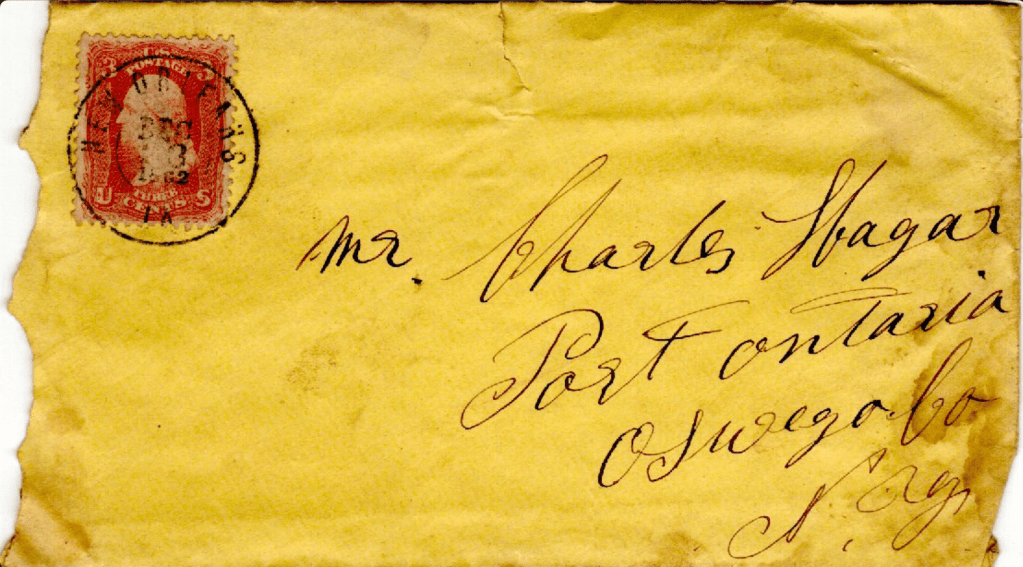 3 U.S. 3
POSTAGE
NEW ORLEANS
DEC
1862
LA
U THREE S
CENTS
Mr. Charles Hagar
Port Ontaria
Oswego Co
N. Y